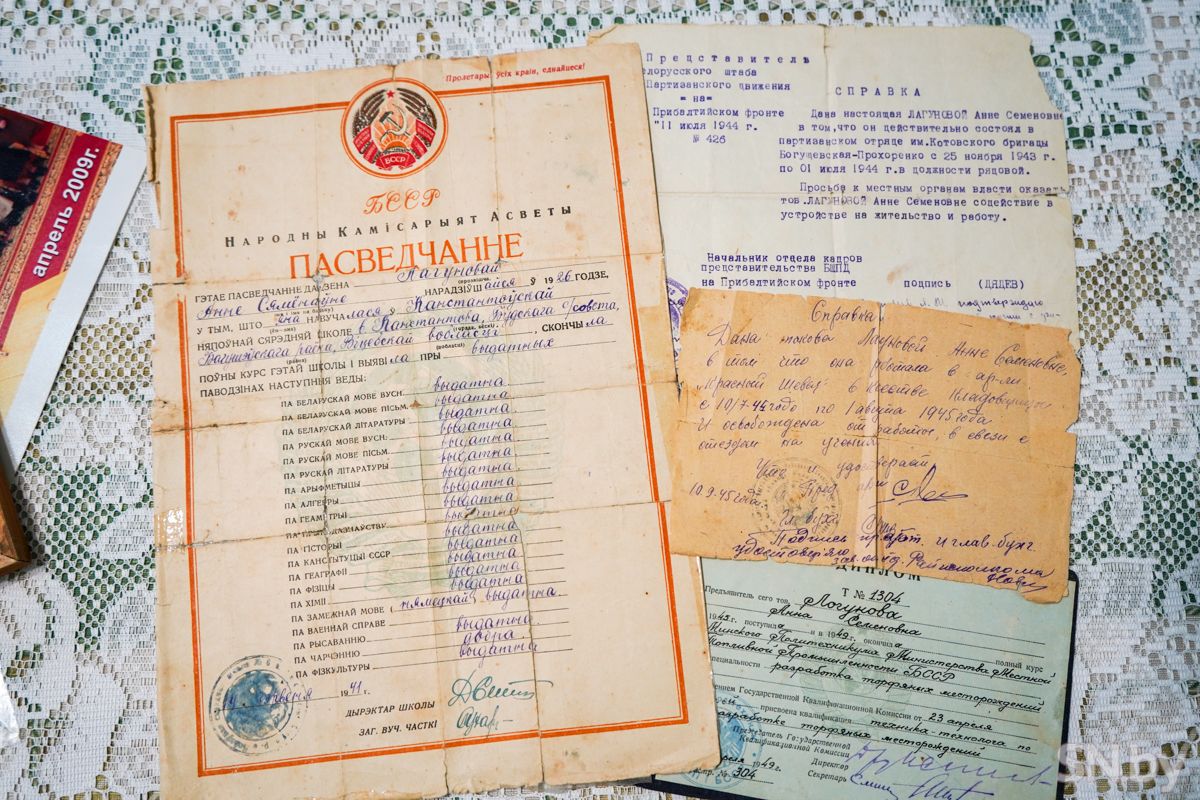 апрель 2009г.
Пролетары ўсіх краін, еднайцеся!
БССР
БССР
НАРОДНЫ КАМІСАРЫЯТ АСВЕТЫ
ПАСВЕДЧАННЕ
ГЭТАЕ ПАСВЕДЧАННЕ ДАДЗЕНА Лагуновай
Анне Сямёнаўне НАРАДЗІЎШАЙСЯ Ў 1926 ГОДЗЕ,
У ТЫМ, ШТО яна НАВУЧАЛАСЯ Ў Канстантоўскай
НЯПОЎНАЙ СЯРЭДНЯЙ ШКОЛЕ в. Канстантова, с/совета,
раёна, Віцебскай вобласці, СКОНЧЫЛА
ПОЎНЫ КУРС ГЭТАЙ ШКОЛЫ І ВЫЯВІЛА ПРЫ выдатных
ПАВОДЗІНАХ НАСТУПНЫЯ ВЕДЫ:
ПА БЕЛАРУСКАЙ МОВЕ ВУСН. выдатна
ПА БЕЛАРУСКАЙ МОВЕ ПІСЬМ. выдатна
ПА БЕЛАРУСКАЙ ЛІТАРАТУРЫ выдатна
ПА РУСКАЙ МОВЕ ВУСН. выдатна
ПА РУСКАЙ МОВЕ ПІСЬМ. выдатна
ПА РУСКАЙ ЛІТАРАТУРЫ выдатна
ПА АРЫФМЕТЫЦЫ выдатна
ПА АЛГЕБРЫ выдатна
ПА ГЕАМЕТРЫІ выдатна
ПА выдатна
ПА ГІСТОРЫІ выдатна
ПА КАНСТЫТУЦЫІ БССР выдатна
ПА ГЕАГРАФІІ выдатна
ПА ФІЗІЦЫ выдатна
ПА ХІМІІ выдатна
ПА ЗАМЕЖНАЙ МОВЕ (нямецкай) выдатна
ПА ВАЕННАЙ СПРАВЕ
ПА РЫСАВАННЮ выдатна
ПА ЧАРЧЭННЮ добра
ПА ФІЗКУЛЬТУРЫ выдатна
1941 г.
ДЫРЭКТАР ШКОЛЫ
ЗАГ. ВУЧ. ЧАСТКІ
Представитель
елорусского штаба
Партизанского движения
=на=
Прибалтийском фронте
"11 июля 1944 г.
№ 426
СПРАВКА
Дана настоящая ЛАГУНОВОЙ Анне Семеновне
в том, что он действительно состоял в
партизанском отряде им.Котовского бригады
Богушевская-Прохоренко с 25 ноября 1943 г.
по 01 июля 1944 г.в должности рядовой.
Просьба к местным органам власти оказать
тов.ЛАГУНОВОЙ Анне Семеновне содействие в
устройстве на жительство и работу.
Начальник отдела кадров
представительства БШПД
на Прибалтийском фронте подпись (ДЯДЕВ)
подтверждаю
Справка
Дана такова Лагуновой Анне Семеновне,
в том что она работала в ар-ли
"Красный Швец" в качестве Кладовщицы
с 10/7-44 годо по 1 августа 1945 года
И освобождена от работы, в связи с
отездом на учения
10.9.45 года
Подпись и глав. бухг.
удостоверяю
ДИПЛОМ
Т № 1304
Предъявитель сего тов. Логунова
Анна Семеновна
1945 г. поступила и в 1949 г. окончила полный курс
Минского Политехникума Министерства Местной
Топливной промышленности БССР
специальности разработка торфяных месторождений
Государственной Квалификационной Комиссии от 23 апреля
присвоена квалификация техника-технолога по
разработке торфяных месторождений
Председатель Государственной
Квалификационной Комиссии
Директор
Секретарь
1949 г.
304
SN.by